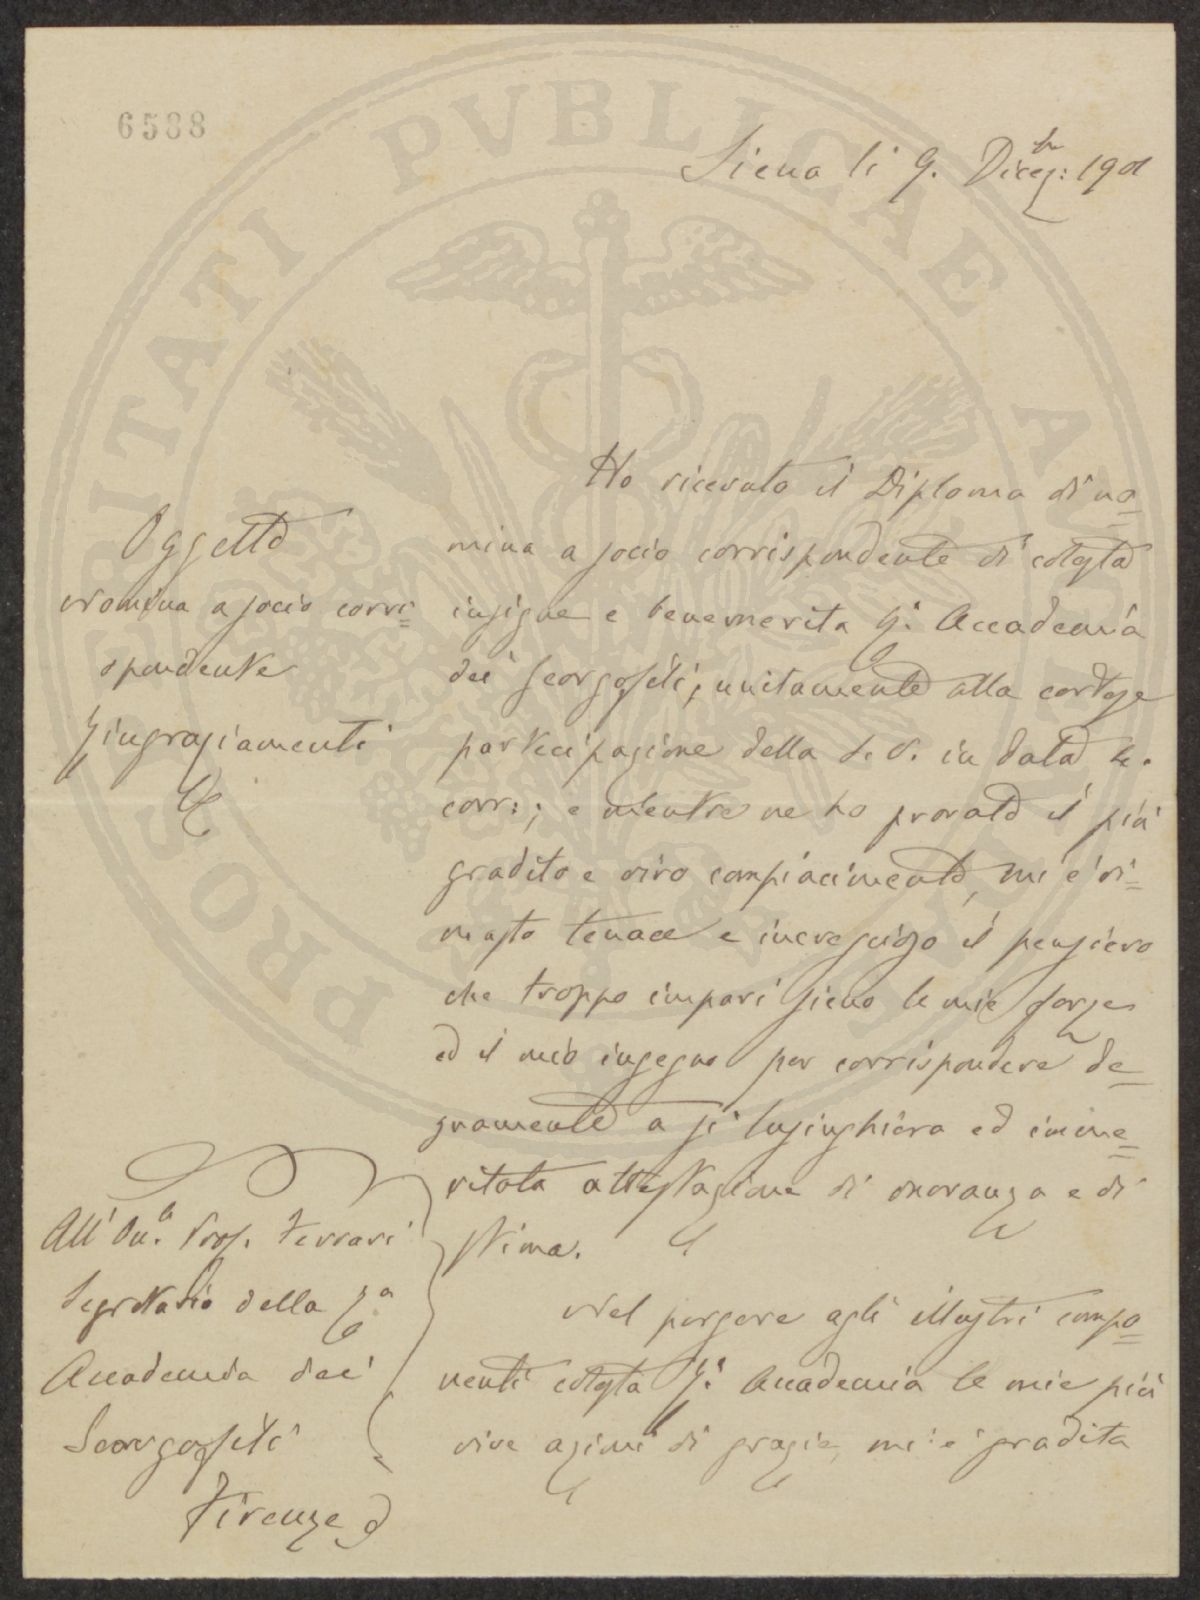 6588
Siena li 9. Dice: bre 1901
Oggetto
Nomina a socio corri=
spondente
Ringraziamenti
Ho ricevuto il Diploma di no=
mina a socio corrispondente di cotesta
insigne e benemerita R. Accademia
dei Georgofili, unitamente alla cortese
partecipazione della S. V. in data
corr:; e mentre ne ho provato il più
gradito e vivo compiacimento, mi è ri=
masto tenace e increscioso il pensiero
che troppo impari sieno le mie forze
ed il mio ingegno per corrispondere de=
gnamente a sì lusinghiera ed imme=
ritata attestazione di onoranza e di
stima.
Nel porgere agli illustri compo=
nenti cotesta R. Accademia le mie più
vive azioni di grazie, mi è gradita
All' On.le Prof. Ferrari
Segretario della R.a
Accademia dei
Georgofili
Firenze
PROSPERITATI PVBLICAE AVGENDAE